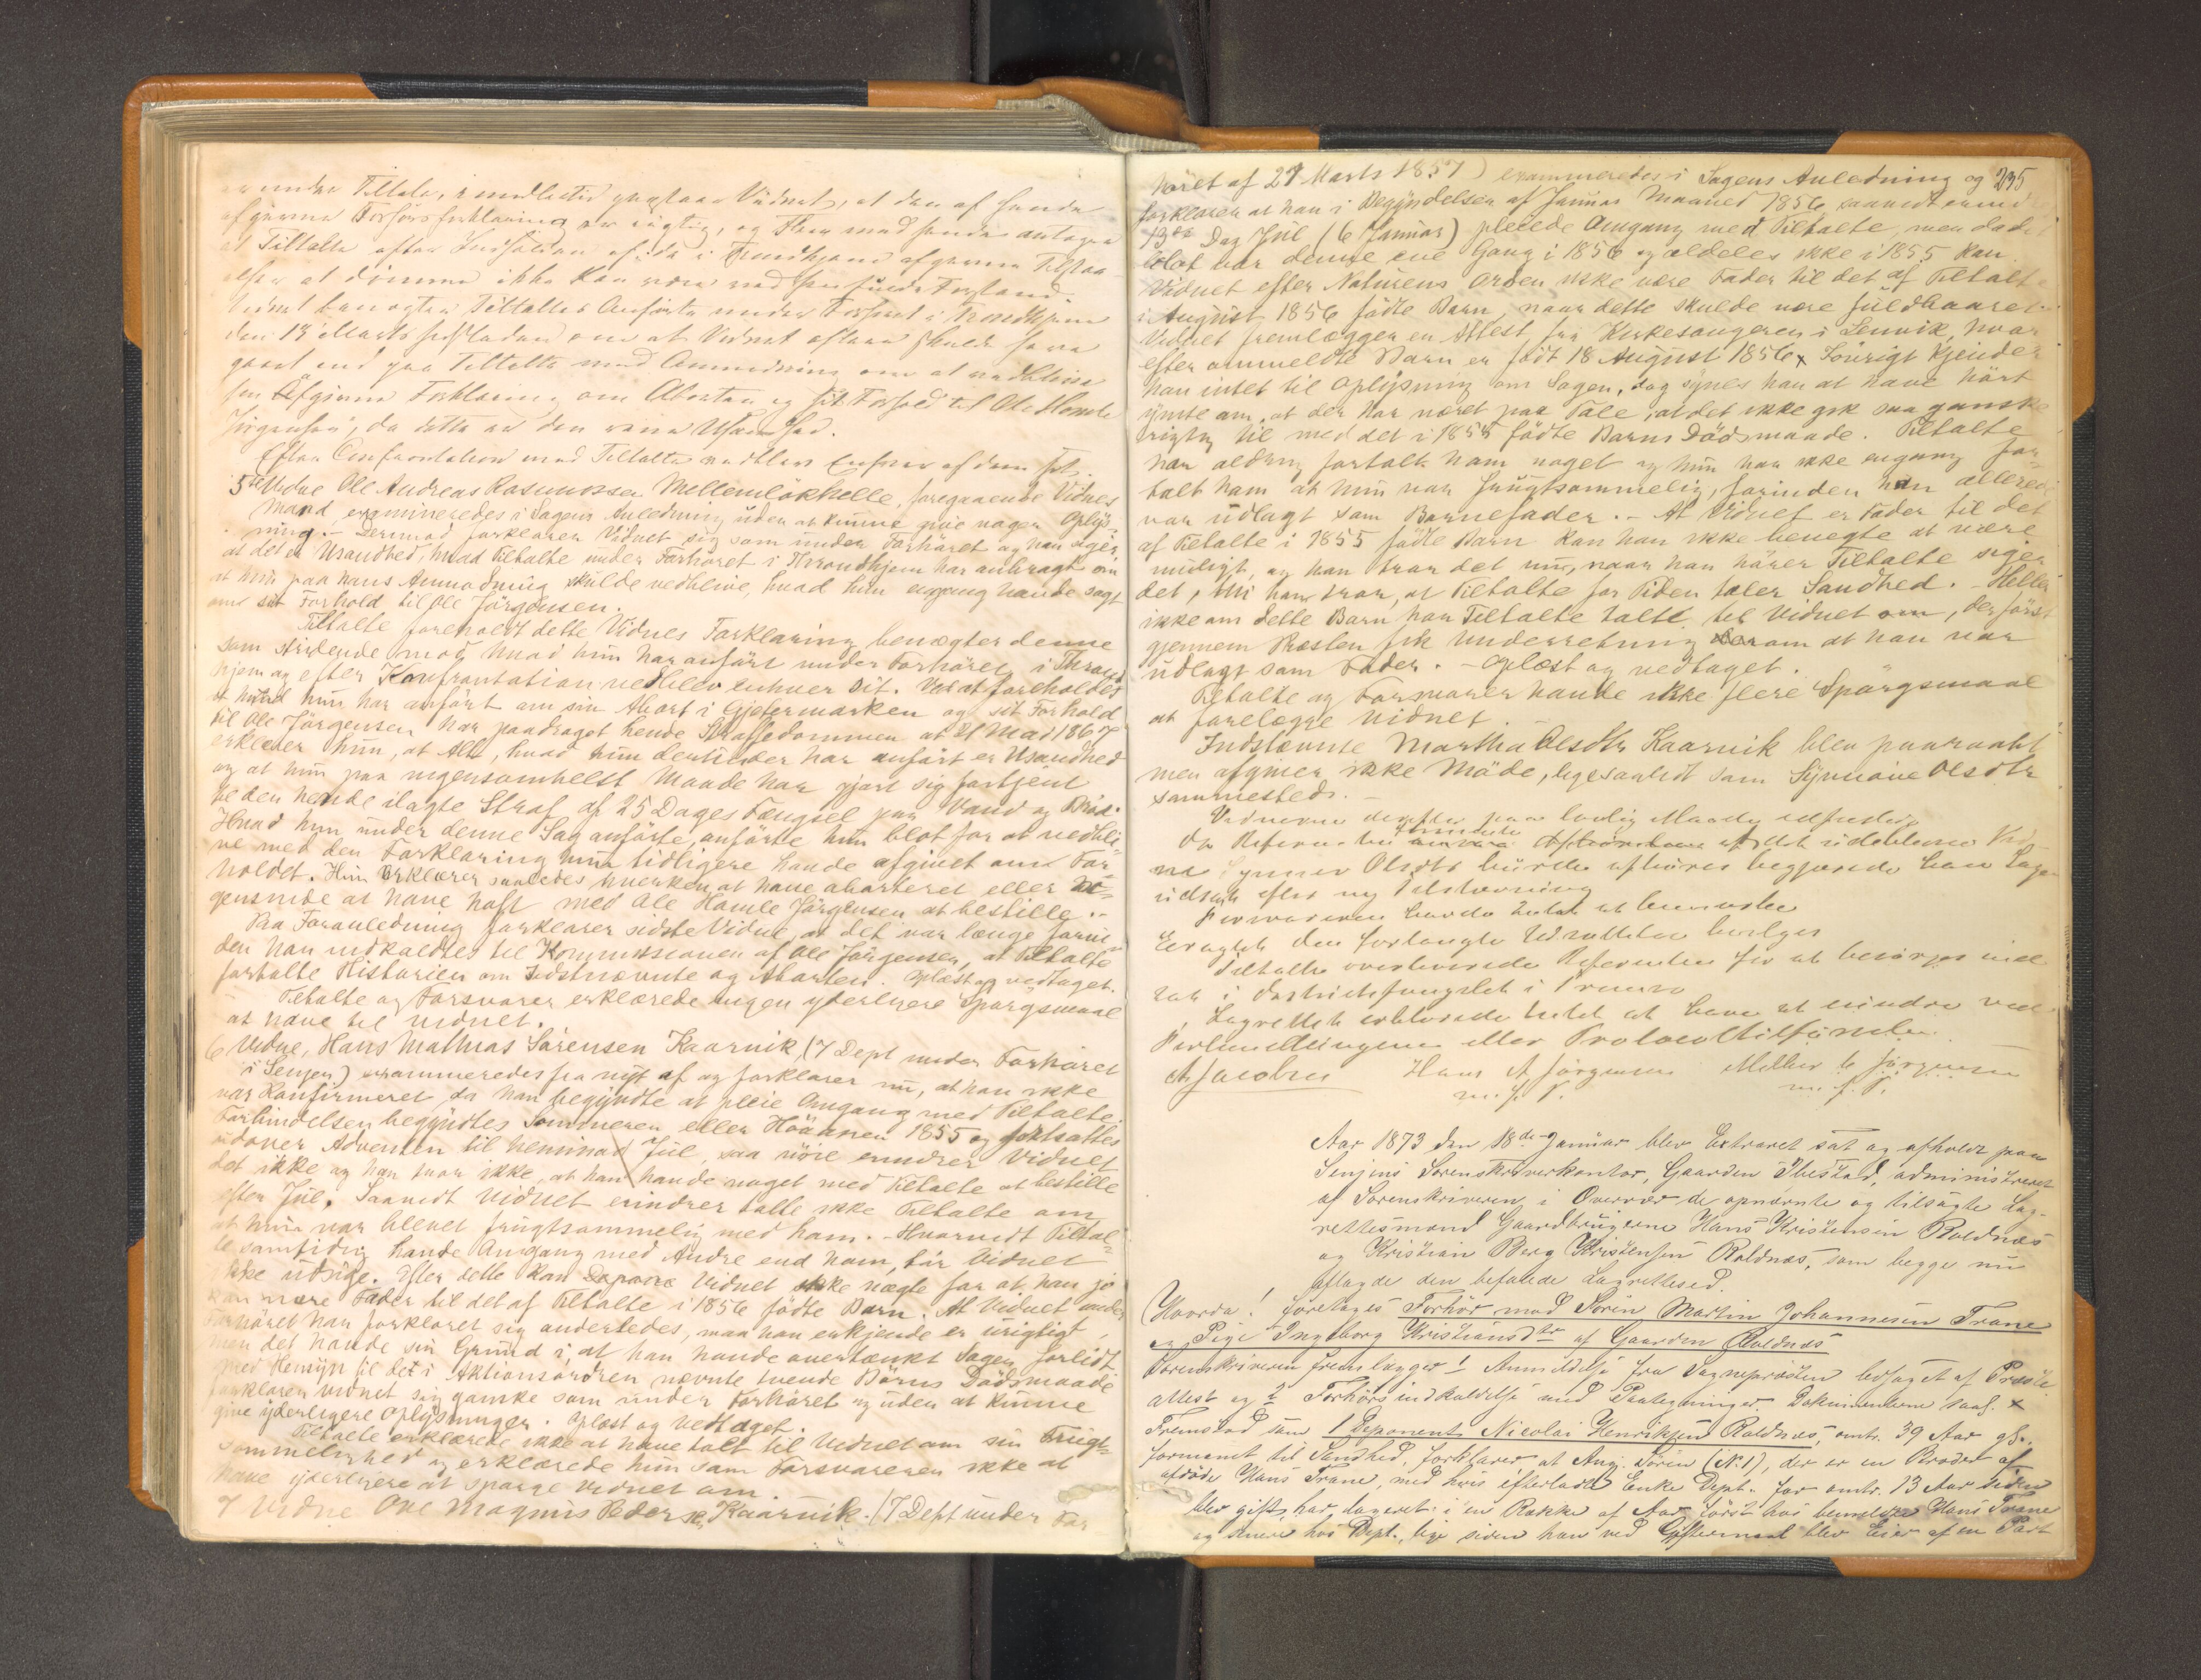 under Tiltale, imidlertid paastaar Vidnet, at den af hende
afgivne Forhørsforklaring er rigtig, og
at Tiltalte efter Indholdet af de i Trondhjem afgivne
at dømme ikke kan være ved sin fulde Forstand.
Vidnet benægter Tiltaltes Anførsel under Forhøret i Trondhjem
den 13 Marts om at Vidnet oftere skulde have
gaaet ind paa Tiltalte med Anmodning om at vedblive
sin afgivne Forklaring om Aborten og sit Forhold til Ole Hamle
Jørgensen, da dette er den rene Usandhed.
Efter Confrontation med Tiltalte vedblev Enhver af dem sit.
5te Vidne Ole Andreas Rasmussen Mellemløkhelle, foregaaende Vidnes
Mand, examineredes i Sagens Anledning uden at kunne give nogen Oplys-
ning. Dermed forklarer Vidnet sig som under Forhøret og han siger
at det er Usandhed, hvad Tiltalte under Forhøret i Throndhjem har anbragt om
at hun paa hans Anmodning skulde vedblive, hvad hun engang havde sagt
om sit Forhold til Ole Jørgensen.
Tiltalte foreholdt dette Vidnes Forklaring benægter denne
som stridende mod, hvad hun har anført under Forhøret i Thrond-
hjem og efter Konfrontation vedblev enhver Sit. Ved at foreholdes
at hvad hun har anført om sin Abort i Gjetermarken og sit Forhold
til Ole Jørgensen har paadraget hende Straffedommen af 21 Mai 1867
erklærer hun, at Alt, hvad hun dertinder har anført er Usandhed
og at hun paa ingensomhelst Maade har gjort sig fortjent
til den hende ilagte Straf af 25 Dages Fængsel paa Vand og Brød.
Hvad hun under denne Sag anførte, anførte hun blot for at vedbli-
ve med den Forklaring hun tidligere havde afgivet om For-
holdet. Hun erklærer saaledes hverken at have aborteret eller no-
gensinde at have haft med Ole Hamle Jørgensen at bestille.
Paa Foranledning forklarer sidste Vidne, at det var længe forin-
den han indkaldtes til Kommissionen af Ole Jørgensen, at Tiltalte
fortalte Historien om Indstævnte og Aborten. Oplæst og vedtaget.
Tiltalte og Forsvarer erklærede ingen yderligere Spørgsmaal
at have til Vidnet.
6 Vidne, Hans Mathias Sørensen Kaarvik, (7 Dept under Forhøret
i Senjen) examineredes fra nyt af og forklarer nu, at han ikke
var Konfirmeret da han begyndte at pleie Omgang med Tiltalte.
Forbindelsen begyndtes Sommeren eller Høsten 1855 og fortsattes
udover Adventen til henimod Jul, saa vidt erindrer Vidnet
det ikke og han tror ikke, at han havde noget med Tiltalte at bestille
efter Jul. Saavidt Vidnet erindrer talte ikke Tiltalte om
at hun var blevet frugtsommelig med ham. - Hvorvidt Tiltal-
te samtidig havde Omgang med Andre end ham, tør Vidnet
ikke udsige. Efter dette kan Vidnet ikke nægte for at han jo
kan være Fader til det af Tiltalte i 1856 fødte Barn. At Vidnet under
Forhøret har forklaret sig anderledes, maa han erkjende er urigtigt,
men det havde sin Grund i, at han havde overtænkt Sagen forlidt.
Med Hensyn til det i Aktionsordren nævnte tvende Børns Dødsmaade
forklarer Vidnet sig ganske som under Forhøret og uden at kunne
give yderligere Oplysninger. Oplæst og Vedtaget.
Tiltalte erklærede ikke at have talt til Vidnet om sin Frugt-
sommelighed og erklærede hun som Forsvareren ikke at
have yderligere at spørge Vidnet om.
7 Vidne Ole Magnus Pedersen Kaarvik. (7 Dept under For
235
høret af 27 Marts 1857) examineredes i Sagens Anledning og
forklarer at han i Begyndelsen af Januar Maaned 1856 saavidt erindres
13de Dag Jul (6 Januar) pleiede Omgang med Tiltalte, men da det
blot var denne ene Gang i 1856 og aldeles ikke i 1855 kan
Vidnet efter Naturens Orden ikke være Fader til det af Tiltalte
i August 1856 fødte Barn, naar dette skulde være fuldbaaret.
Vidnet fremlægger en Attest fra Kirkesangeren i Lenvik, hvor-
efter ommeldte Barn er født 18 August 1856 x Iøvrigt kjender
han intet til Oplysning om Sagen, dog synes han at have hørt
ymte om, at der har været paa Tale, at det ikke gik saa ganske
rigtig til med det i 1855 fødte Barns Dødsmaade. Tiltalte
har aldrig fortalt ham noget og hun har ikke engang for-
talt ham at hun var frugtsommelig, forinden han allerede
var udlagt som Barnefader. - At Vidnet er Fader til det
af Tiltalte i 1855 fødte Barn kan han ikke benegte at være
muligt, og han tror det nu, naar han hører Tiltalte siger
det, thi han tror, at Tiltalte for Tiden taler Sandhed. - Heller
ikke om dette Barn har Tiltalte talt til Vidnet om, der først
gjennem Præsten fik Underretning derom at han var
udlagt som Fader. - Oplæst og vedtaget.
Tiltalte og Forsvarer havde ikke flere Spørgsmaal
at forelægge Vidnet.
Indstævnte Martha Olsdtr Kaarvik blev paaraabt
men afgiver ikke Møde, ligesaalidt som Synnøve Olsdtr
sammesteds. -
Vidnerne derefter paa lovlig Maade
Da Referenten formente Afhørelsen af det udeblevne Vid-
ne Synnøve Olsdtr burde afhøres begjærede han Sagen
udsat efter ny Tilstævning
Forsvareren havde Intet at bemærke
Eragtet den forlangte Udsættelse bevilges
Tiltalte overleveredes Referenten for at besørges ind-
sat i Distriktsfængslet i Tromsø
Lagrettet erklærede Intet at have at erindre ved
Forhandlingerne eller Protocoltilførselen.
A Jacobsen Hans A Jørgensen Mikkel C Jørgensen
m. f. P. m. f. P.
Aar 1873 den 18de Januar blev Extraret sat og afholdt paa
Senjens Sorenskriverkontor, Gaarden Thustad, administreret
af Sorenskriveren, i Overvær de opnævnte og tilsagte Lag-
rettesmænd Gaardbrugerne Hans Kristensen Roldnæs
og Kristian Berg Kristensen Roldnæs, som begge nu
aflagde den befalede Lagrettesed.
Hvorda! foretages Forhør mod Sørin Martin Johannesen Trane
og Pige Ingeborg Kristiansdtr af Gaarden Roldnæs
Sorenskriveren fremlægger 1 Anmeldelse fra Sognepræsten ledsaget af Præste-
attest og 2 Forhørsindkaldelse med Paategninger. Dokumenterne saal. x
Fremstod som 1 Deponent Nicolai Henriksen Roldnæs, omtr. 39 Aar gl.,
formanet til Sandhed, forklarer at Ang. Sørin (No 1), der er en Broder af
afdøde Hans Trane, med hvis efterladte Enke Dept. for omtr. 13 Aar siden
blev gift, har logeret i en Række af Aar først hos bemeldte Hans Trane
og senere hos Dept., lige siden han ved Giftermaal blev Eier af en Part